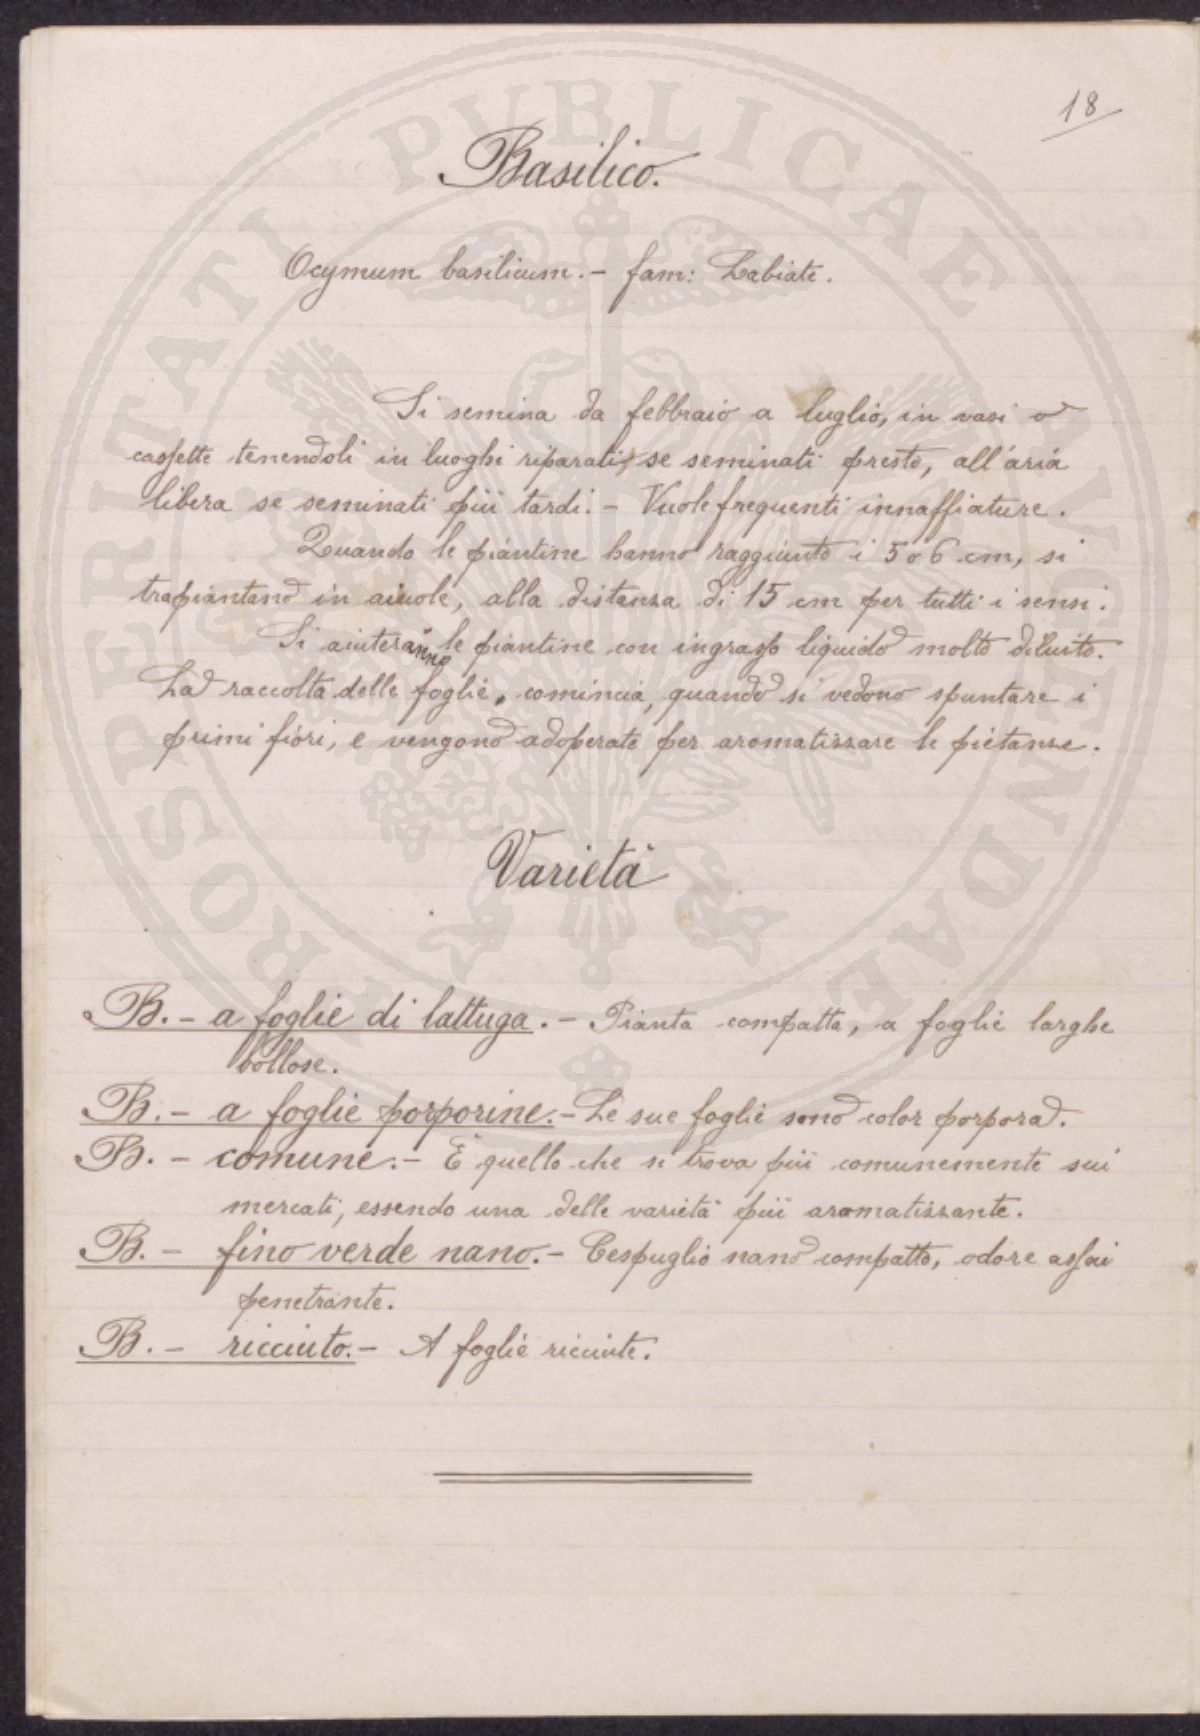 18
Basilico.
Ocymum basilicum. - fam: Labiate.
Si semina da febbraio a luglio, in vasi o
cassette tenendoli in luoghi riparati se seminati presto, all'aria
libera se seminati più tardi. - Vuole frequenti innaffiature.
Quando le piantine hanno raggiunto i 5 o 6 cm, si
trapiantano in aiuole, alla distanza di 15 cm per tutti i sensi.
Si aiuteranno le piantine con ingrasso liquido molto diluito.
La raccolta delle foglie, comincia, quando si vedono spuntare i
primi fiori, e vengono adoperate per aromatizzare le pietanze.
Varietà
B. - a foglie di lattuga. - Pianta compatta, a foglie larghe
bollose.
B. - a foglie porporine. - Le sue foglie sono color porpora.
B. - comune. - È quello che si trova più comunemente sui
mercati, essendo una delle varietà più aromatizzante.
B. - fino verde nano. - Cespuglio nano compatto, odore assai
penetrante.
B. - ricciuto. - A foglie ricciute.
PROSPERITATI PUBLICAE AUGENDAE